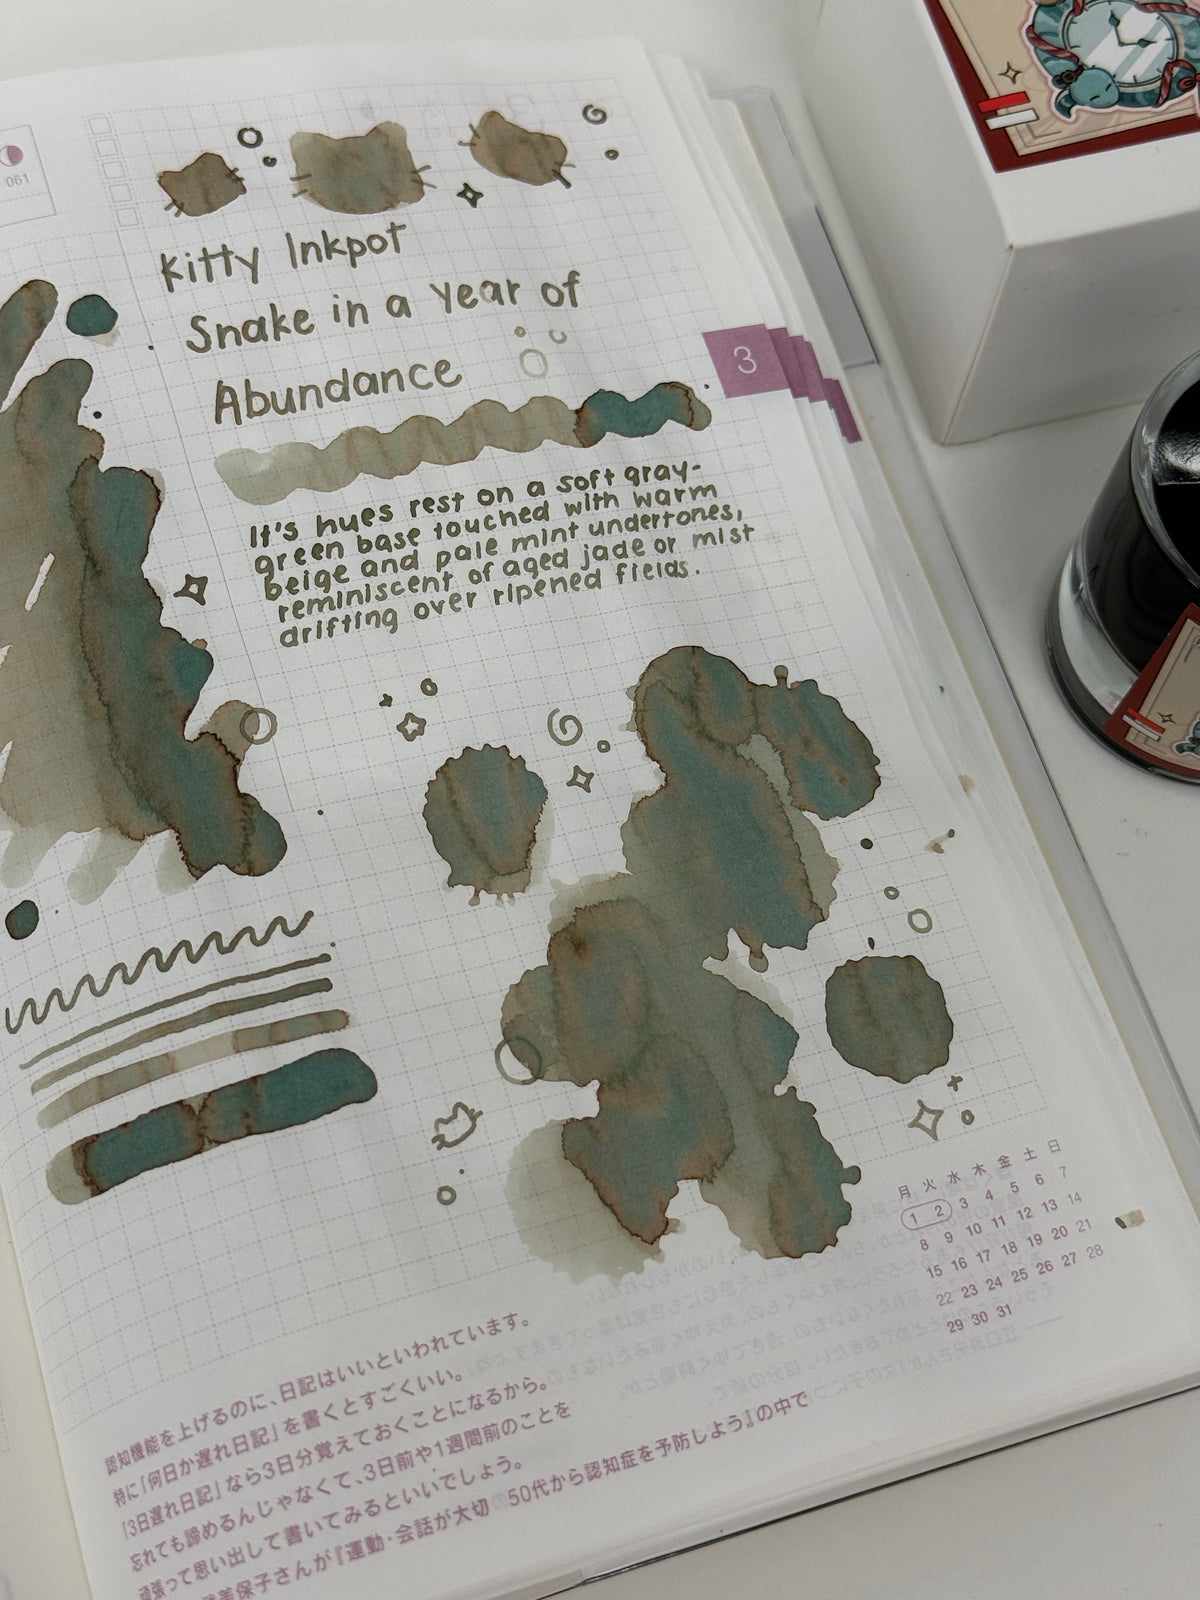 061
Kitty Inkpot
Snake in a Year of
Abundance
3
It's hues rest on a soft gray-
green base touched with warm
beige and pale mint undertones,
reminiscent of aged jade or mist
drifting over ripened fields.
月 火 水 木 金 土 日
1 2 3 4 5 6 7
8 9 10 11 12 13 14
15 16 17 18 19 20 21
22 23 24 25 26 27 28
29 30 31
認知機能を上げるのに、日記はいいといわれています。
特に「何日か遅れ日記」を書くとすごくいい。
「3日遅れ日記」なら3日分覚えておくことになるから。
忘れても諦めるんじゃなくて、3日前や1週間前のことを
頑張って思い出して書いてみるといいでしょう。
美保子さんが『運動・会話が大切 50代から認知症を予防しよう』の中で